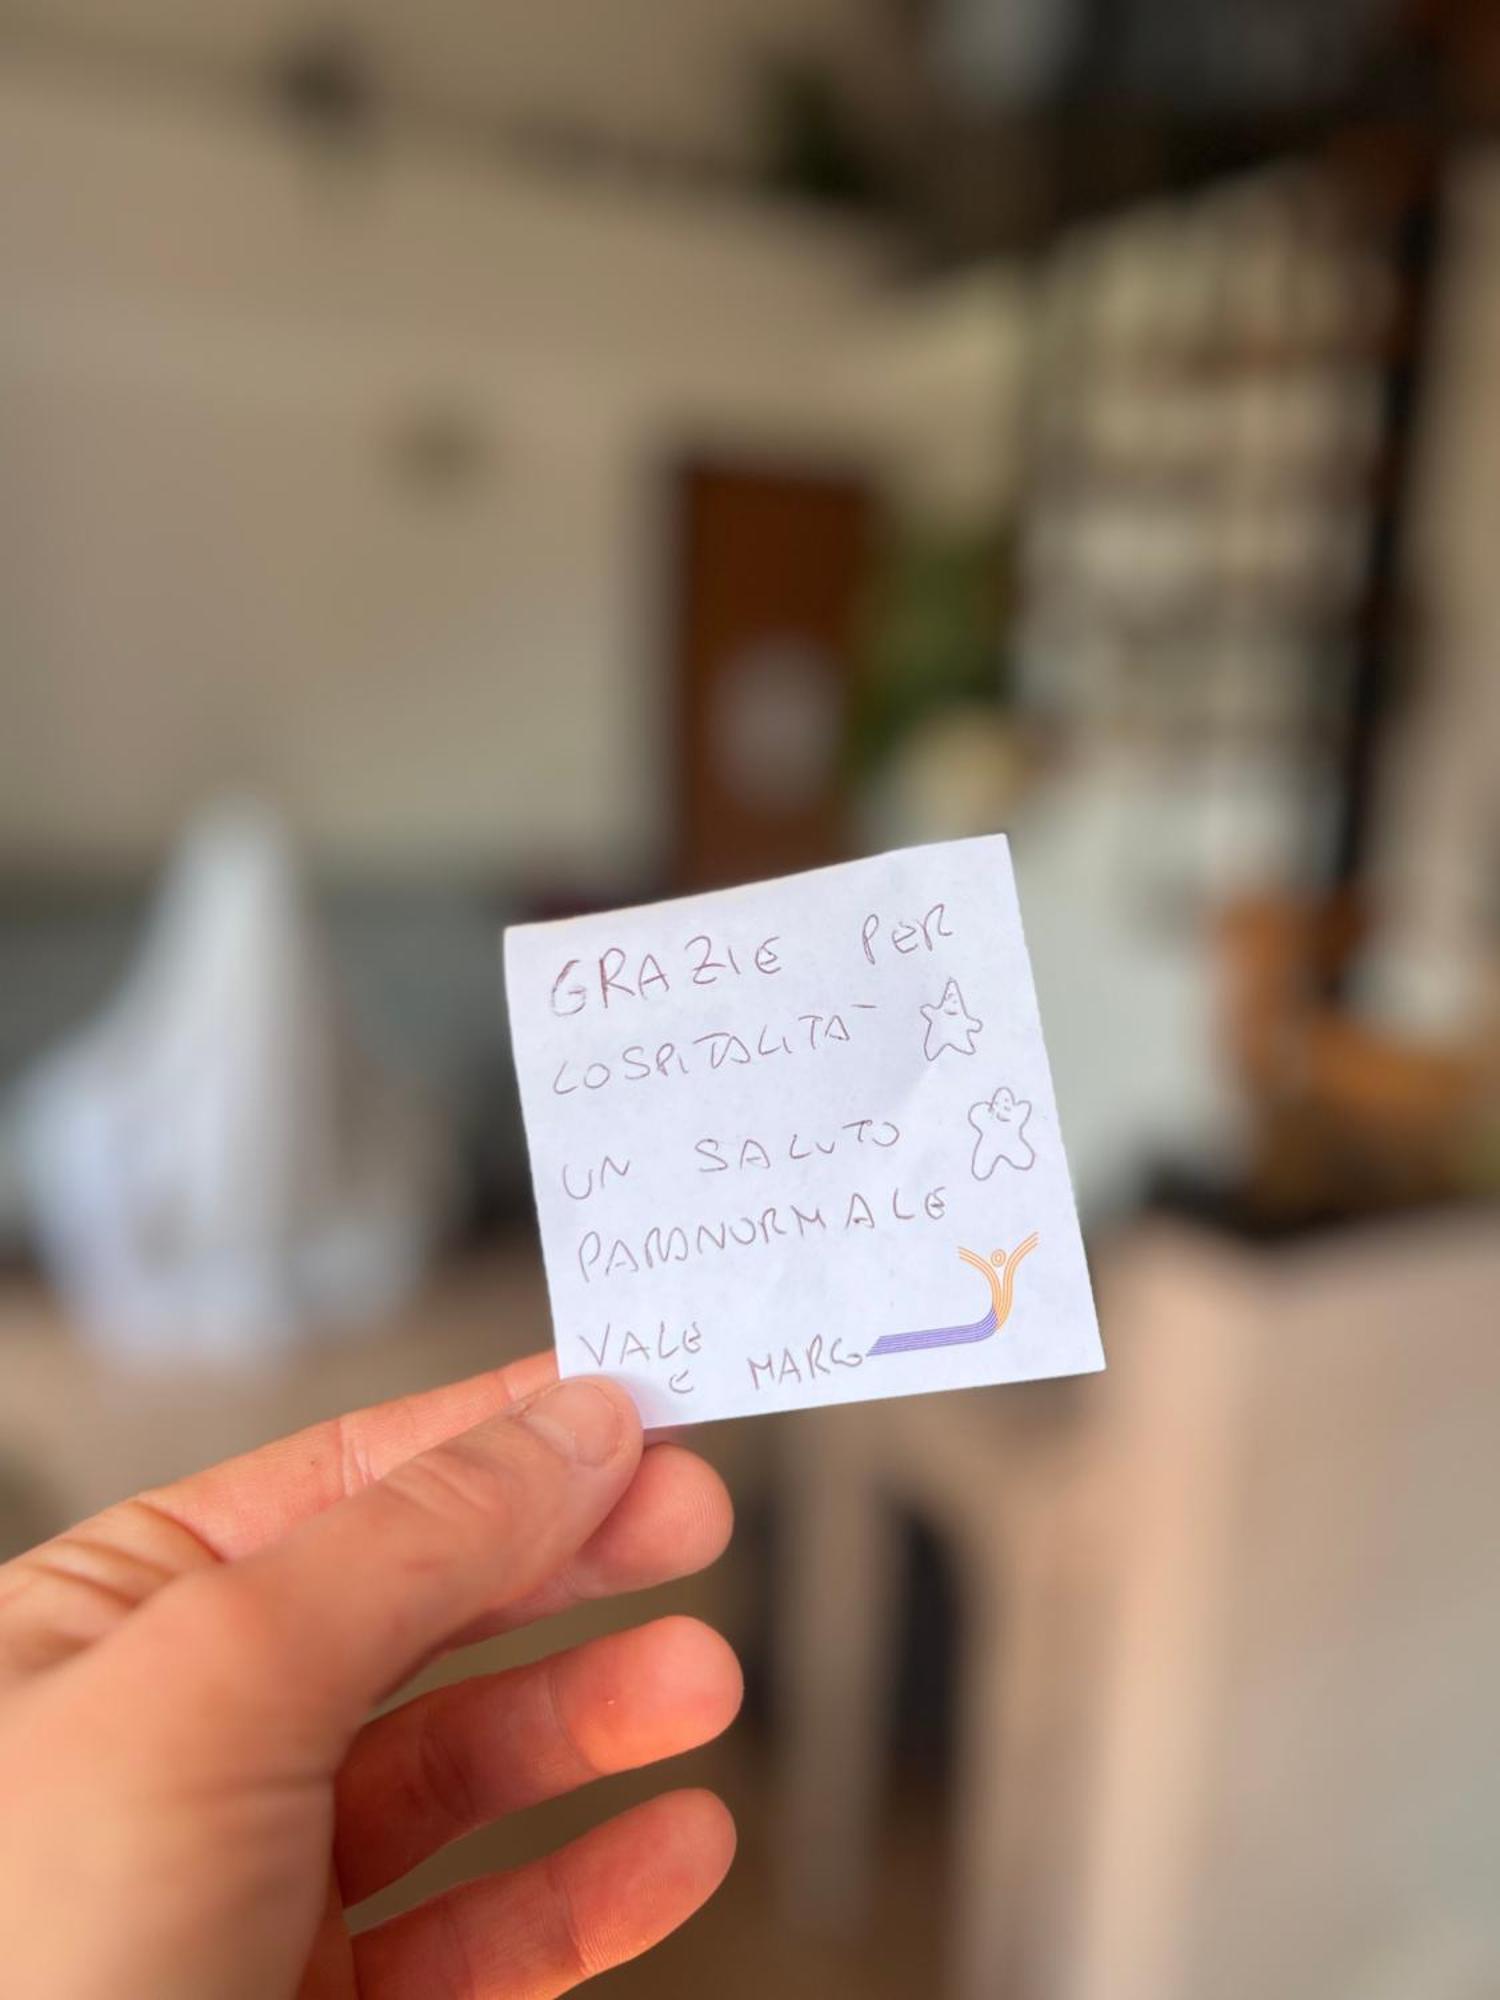 GRAZIE PER
LOSPITALITA'
UN SALUTO
PARANORMALE
VALE
E MARG